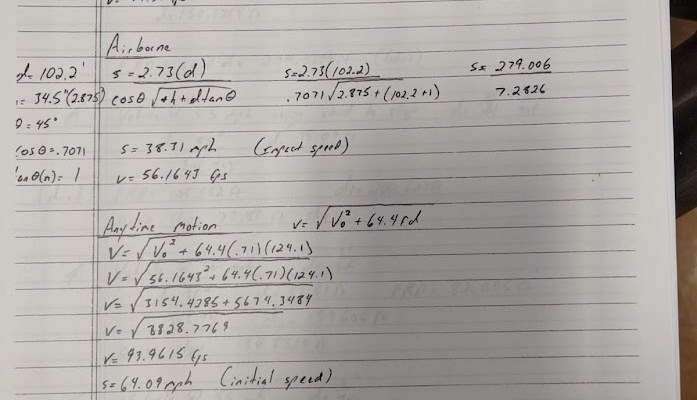 Airborne
d= 102.2' s = 2.73(d) s=2.73(102.2) s= 279.006
= 34.5"(2.875) cosθ √±h+dtanθ .7071√2.875+(102.2+1) 7.2826
θ = 45°
cosθ=.7071 s= 38.31 mph (impact speed)
tanθ(n)= 1 v= 56.1643 fps
Anytime motion v= √V₀² + 64.4fd
V= √V₀² + 64.4(.71)(124.1)
V= √56.1643² + 64.4(.71)(124.1)
V= √3154.4285+5674.3484
V= √8828.7769
V= 93.9615 fps
s= 64.09 mph (initial speed)